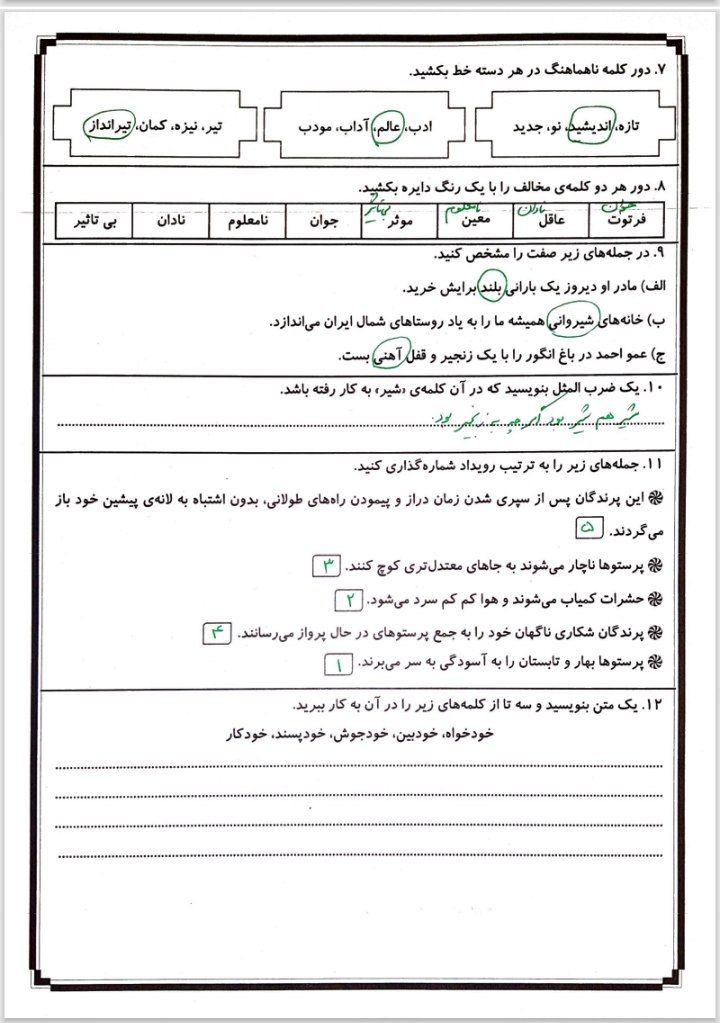 ۷. دور کلمه ناهماهنگ در هر دسته خط بکشید.
تازه، اندیشید، نو، جدید
ادب، عالم، آداب، مودب
تیر، نیزه، کمان، تیرانداز
۸. دور هر دو کلمه‌ی مخالف را با یک رنگ دایره بکشید.
جوان نادان نامعلوم بی‌تاثیر
فرتوت عاقل معین موثر جوان نامعلوم نادان بی تاثیر
۹. در جمله‌های زیر صفت را مشخص کنید.
الف) مادر او دیروز یک بارانی بلند برایش خرید.
ب) خانه‌های شیروانی همیشه ما را به یاد روستاهای شمال ایران می‌اندازد.
ج) عمو احمد در باغ انگور را با یک زنجیر و قفل آهنی بست.
۱۰. یک ضرب المثل بنویسید که در آن کلمه‌ی «شیر» به کار رفته باشد.
شیر هم شیر بود گرچه به زنجیر بود.
۱۱. جمله‌های زیر را به ترتیب رویداد شماره‌گذاری کنید.
این پرندگان پس از سپری شدن زمان دراز و پیمودن راه‌های طولانی، بدون اشتباه به لانه‌ی پیشین خود باز
می‌گردند. ۵
پرستوها ناچار می‌شوند به جاهای معتدل‌تری کوچ کنند. ۳
حشرات کمیاب می‌شوند و هوا کم کم سرد می‌شود. ۲
پرندگان شکاری ناگهان خود را به جمع پرستوهای در حال پرواز می‌رسانند. ۴
پرستوها بهار و تابستان را به آسودگی به سر می‌برند. ۱
۱۲. یک متن بنویسید و سه تا از کلمه‌های زیر را در آن به کار ببرید.
خودخواه، خودبین، خودجوش، خودپسند، خودکار